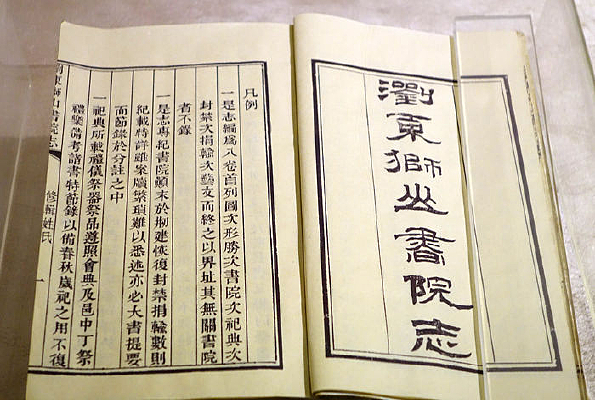 瀏東獅山書院志
凡例
一是志編爲八卷首列圖次形勝次書院次祀典次
封禁次捐輸次藝文而終之以界址其無關書院
者不錄
一是志專紀書院顛末於剏建恢復封禁捐輸數則
記載特詳雖案牘繁瑣難以悉述亦必大書提要
而節錄於分註之中
一祀典所載禮儀祭器祭品遵照會典及邑中丁祭
禮樂備考諸書特節錄以備春秋歲祀之用不復
東獅山書院志 修輯姓氏 一